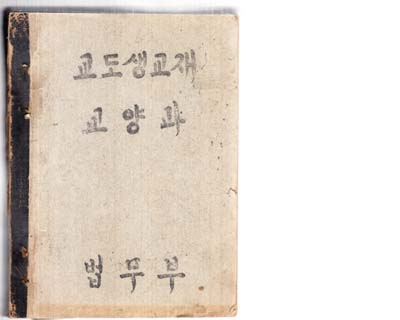 교도생교재
교양과
법무부